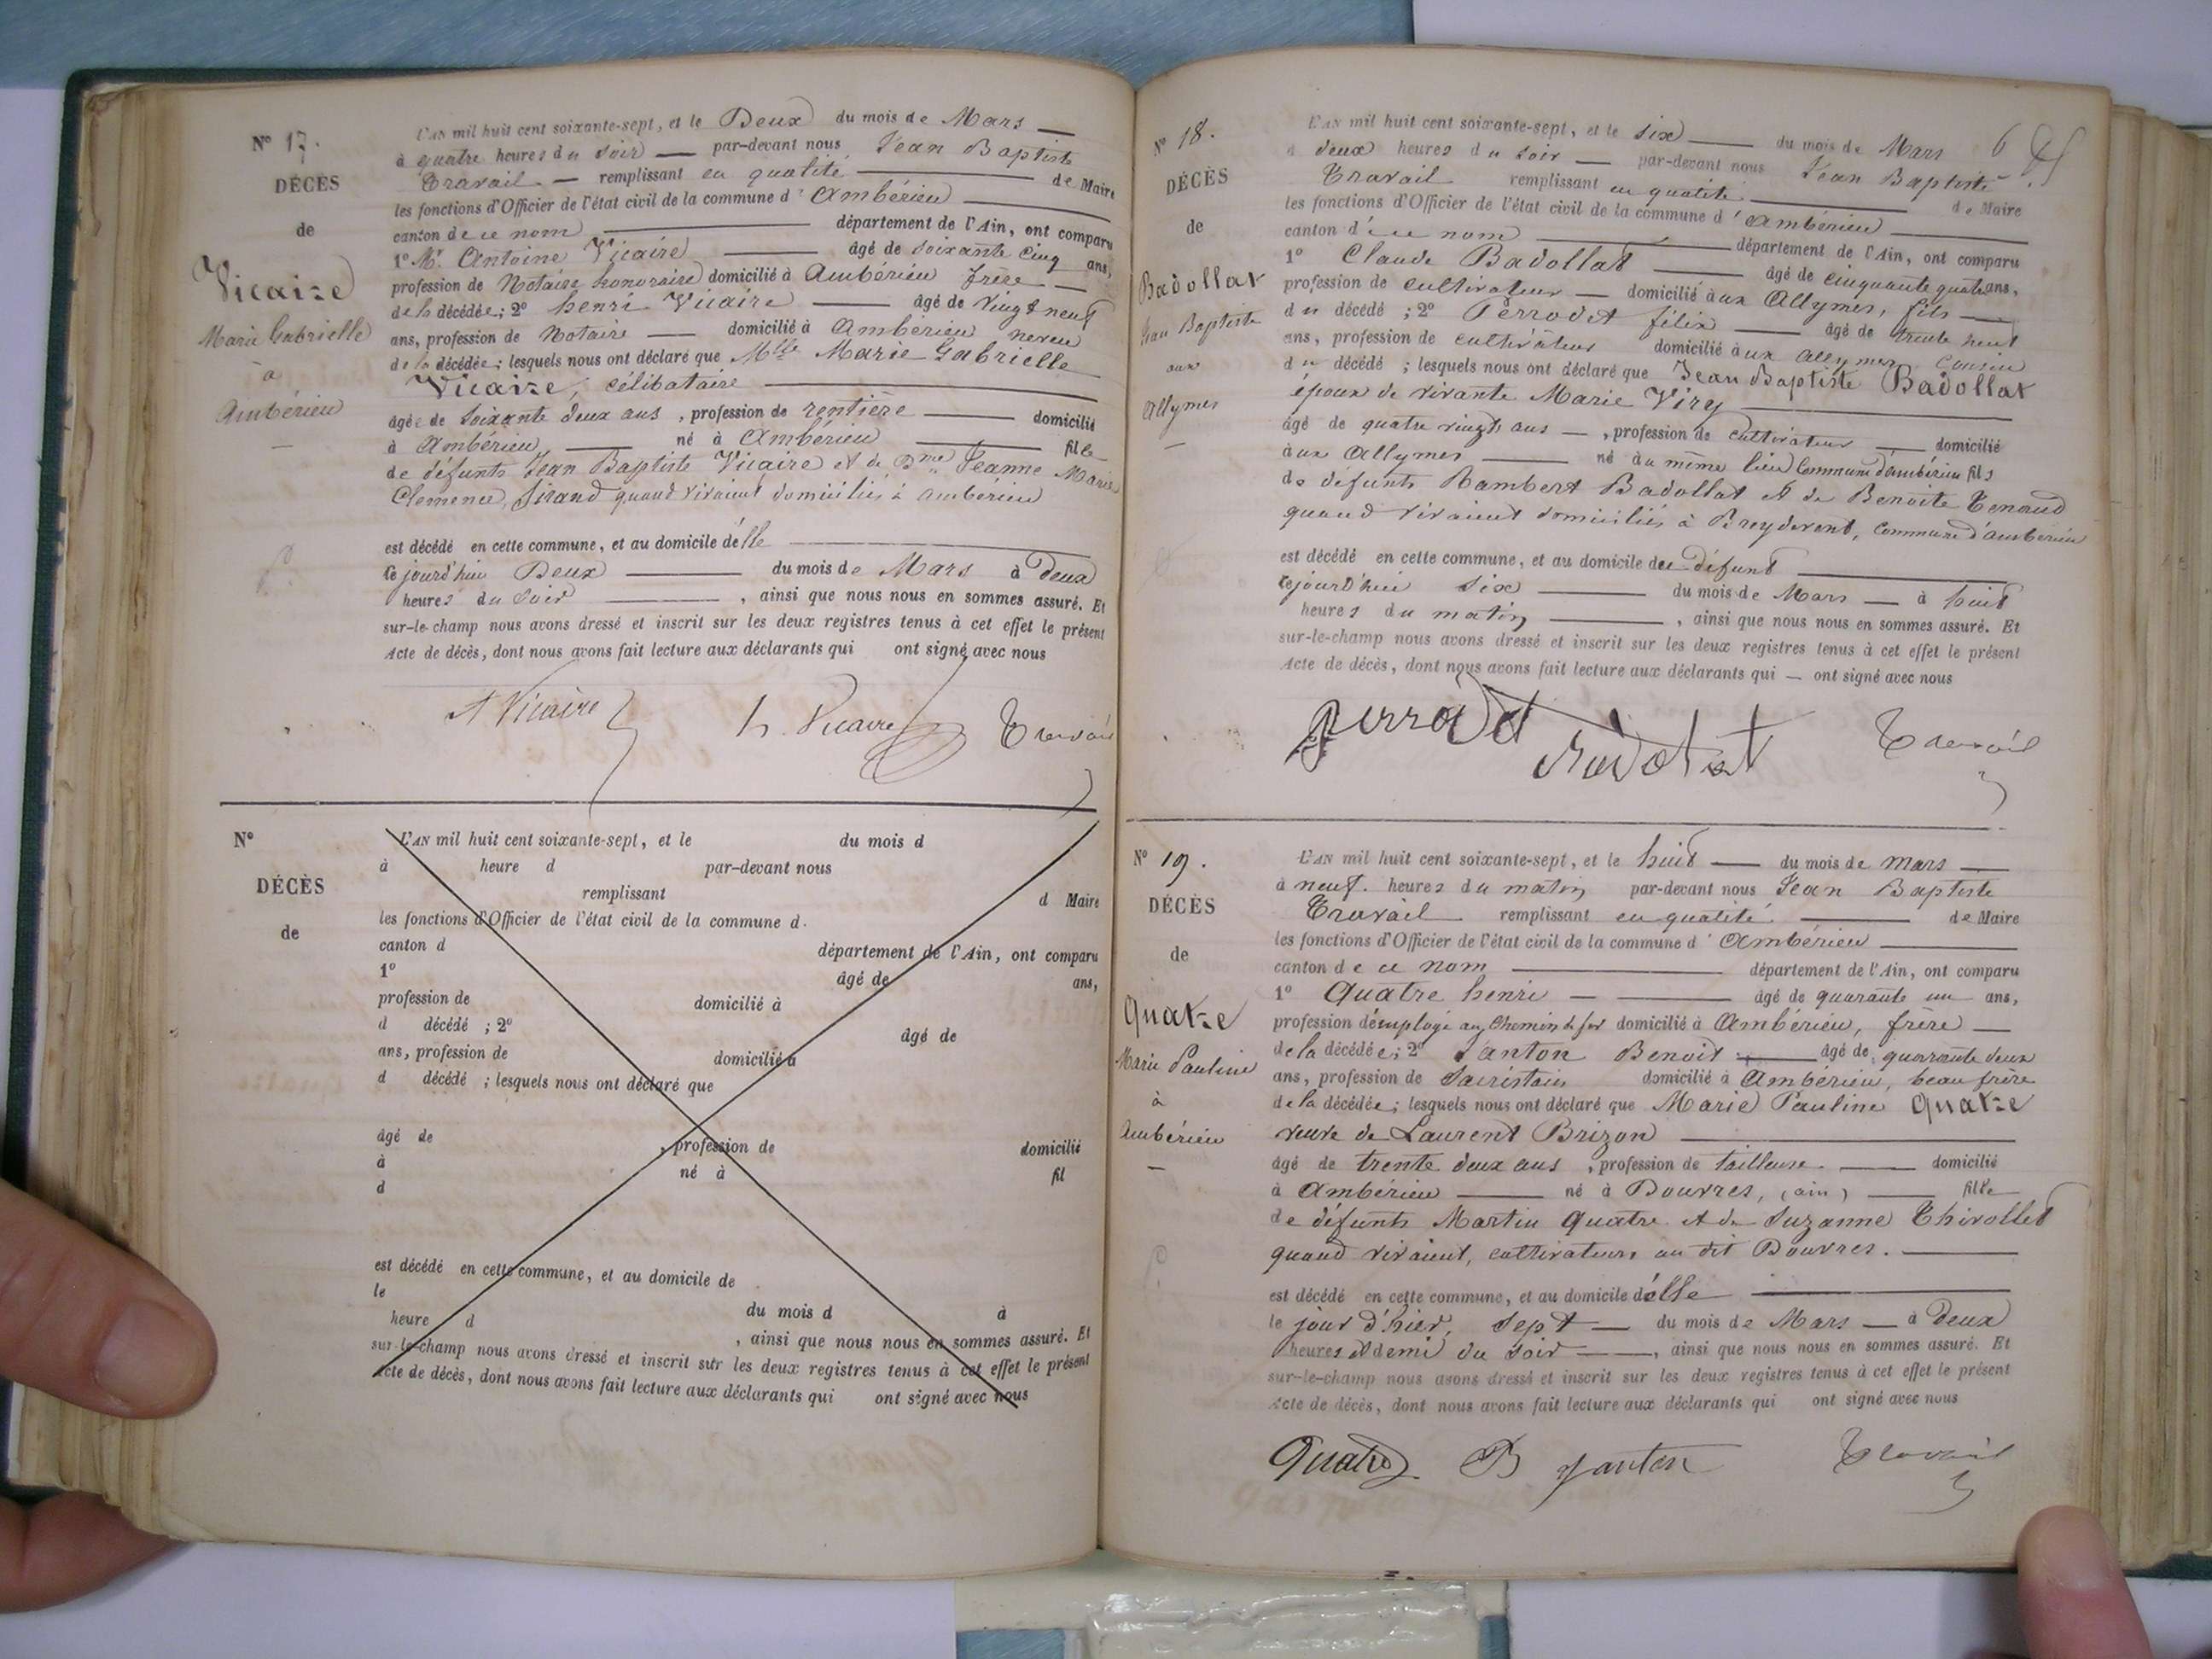 N° 17.
DÉCÈS
de
Vicaire
Marie Gabrielle
à
Ambérieu
L'AN mil huit cent soixante-sept, et le Deux du mois de Mars
à quatre heures du soir par-devant nous Jean Baptiste
Travail remplissant en qualité de Maire
les fonctions d'Officier de l'état civil de la commune d'Ambérieu
canton de ce nom département de l'Ain, ont comparu
1° Mr. Antoine Vicaire âgé de soixante cinq ans,
profession de Notaire honoraire domicilié à Ambérieu frère
de la décédée; 2° henri Vicaire âgé de vingt neuf
ans, profession de Notaire domicilié à Ambérieu neveu
de la décédée; lesquels nous ont déclaré que Mlle Marie Gabrielle
Vicaire, célibataire
âgée de soixante deux ans, profession de rentière domicilié
à Ambérieu, né à Ambérieu fille
de défunts Jean Baptiste Vicaire et de Dme Jeanne Marie
Clemence, Sirand quand vivaient domiciliés à ambérieu
est décédé en cette commune, et au domicile d'elle
cejourd'hui Deux du mois de Mars à Deux
heures du soir, ainsi que nous nous en sommes assuré. Et
sur-le-champ nous avons dressé et inscrit sur les deux registres tenus à cet effet le présent
Acte de décès, dont nous avons fait lecture aux déclarants qui ont signé avec nous
A Vicaire h. Vicaire Travail
N°
DÉCÈS
de
L'AN mil huit cent soixante-sept, et le du mois d
à heure d par-devant nous
remplissant d Maire
les fonctions d'Officier de l'état civil de la commune d
canton d département de l'Ain, ont comparu
1° âgé de ans,
profession de domicilié à
d décédé ; 2° âgé de
ans, profession de domicilié à
d décédé ; lesquels nous ont déclaré que
âgé de , profession de domicilié
à né à fil
d
est décédé en cette commune, et au domicile de
le du mois d à
heure d , ainsi que nous nous en sommes assuré. Et
sur-le-champ nous avons dressé et inscrit sur les deux registres tenus à cet effet le présent
Acte de décès, dont nous avons fait lecture aux déclarants qui ont signé avec nous
N° 18.
DÉCÈS
de
Badollat
Jean Baptiste
aux
Allymes
L'AN mil huit cent soixante-sept, et le six du mois de Mars 6
à deux heures du soir par-devant nous Jean Baptiste
Travail remplissant en qualité de Maire
les fonctions d'Officier de l'état civil de la commune d'Ambérieu
canton de ce nom département de l'Ain, ont comparu
1° Claude Badollat âgé de cinquante quatre ans,
profession de cultivateur domicilié aux Allymes, fils
du décédé ; 2° Perrodet félix âgé de trente neuf
ans, profession de cultivateur domicilié aux allymes cousin
du décédé ; lesquels nous ont déclaré que Jean Baptiste Badollat
époux de vivante Marie Virey
âgé de quatre vingts ans, profession de cultivateur domicilié
aux Allymes né au même lieu Commune d'ambérieu fils
de défunts Rambert Badollat et de Benoite Tenand
quand vivaient domiciliés à Breydevent, Commune d'ambérieu
est décédé en cette commune, et au domicile du défunt
cejourd'hui six du mois de Mars à huit
heures du matin, ainsi que nous nous en sommes assuré. Et
sur-le-champ nous avons dressé et inscrit sur les deux registres tenus à cet effet le présent
Acte de décès, dont nous avons fait lecture aux déclarants qui ont signé avec nous
Travail
N° 19.
DÉCÈS
de
Quatre
Marie Pauline
à
Ambérieu
L'AN mil huit cent soixante-sept, et le huit du mois de mars
à neuf heures du matin par-devant nous Jean Baptiste
Travail remplissant en qualité de Maire
les fonctions d'Officier de l'état civil de la commune d'Ambérieu
canton de ce nom département de l'Ain, ont comparu
1° Quatre henri âgé de quarante un ans,
profession d'employé au Chemin de fer domicilié à Ambérieu, frère
de la décédée; 2° Janton Benoit âgé de quarante deux
ans, profession de Sacristain domicilié à Ambérieu, beau frère
de la décédée; lesquels nous ont déclaré que Marie Pauline Quatre
veuve de Laurent Brizon
âgé de trente deux ans, profession de tailleuse domicilié
à Ambérieu né à Douvres, (ain) fille
de défunts Martin Quatre et de Suzanne Thivollet
quand vivaient, cultivateurs au dit Douvres.
est décédé en cette commune, et au domicile d'elle
le jour d'hier, Sept du mois de Mars à Deux
heures et demi du soir, ainsi que nous nous en sommes assuré. Et
sur-le-champ nous avons dressé et inscrit sur les deux registres tenus à cet effet le présent
Acte de décès, dont nous avons fait lecture aux déclarants qui ont signé avec nous
Quatre B Janton Travail